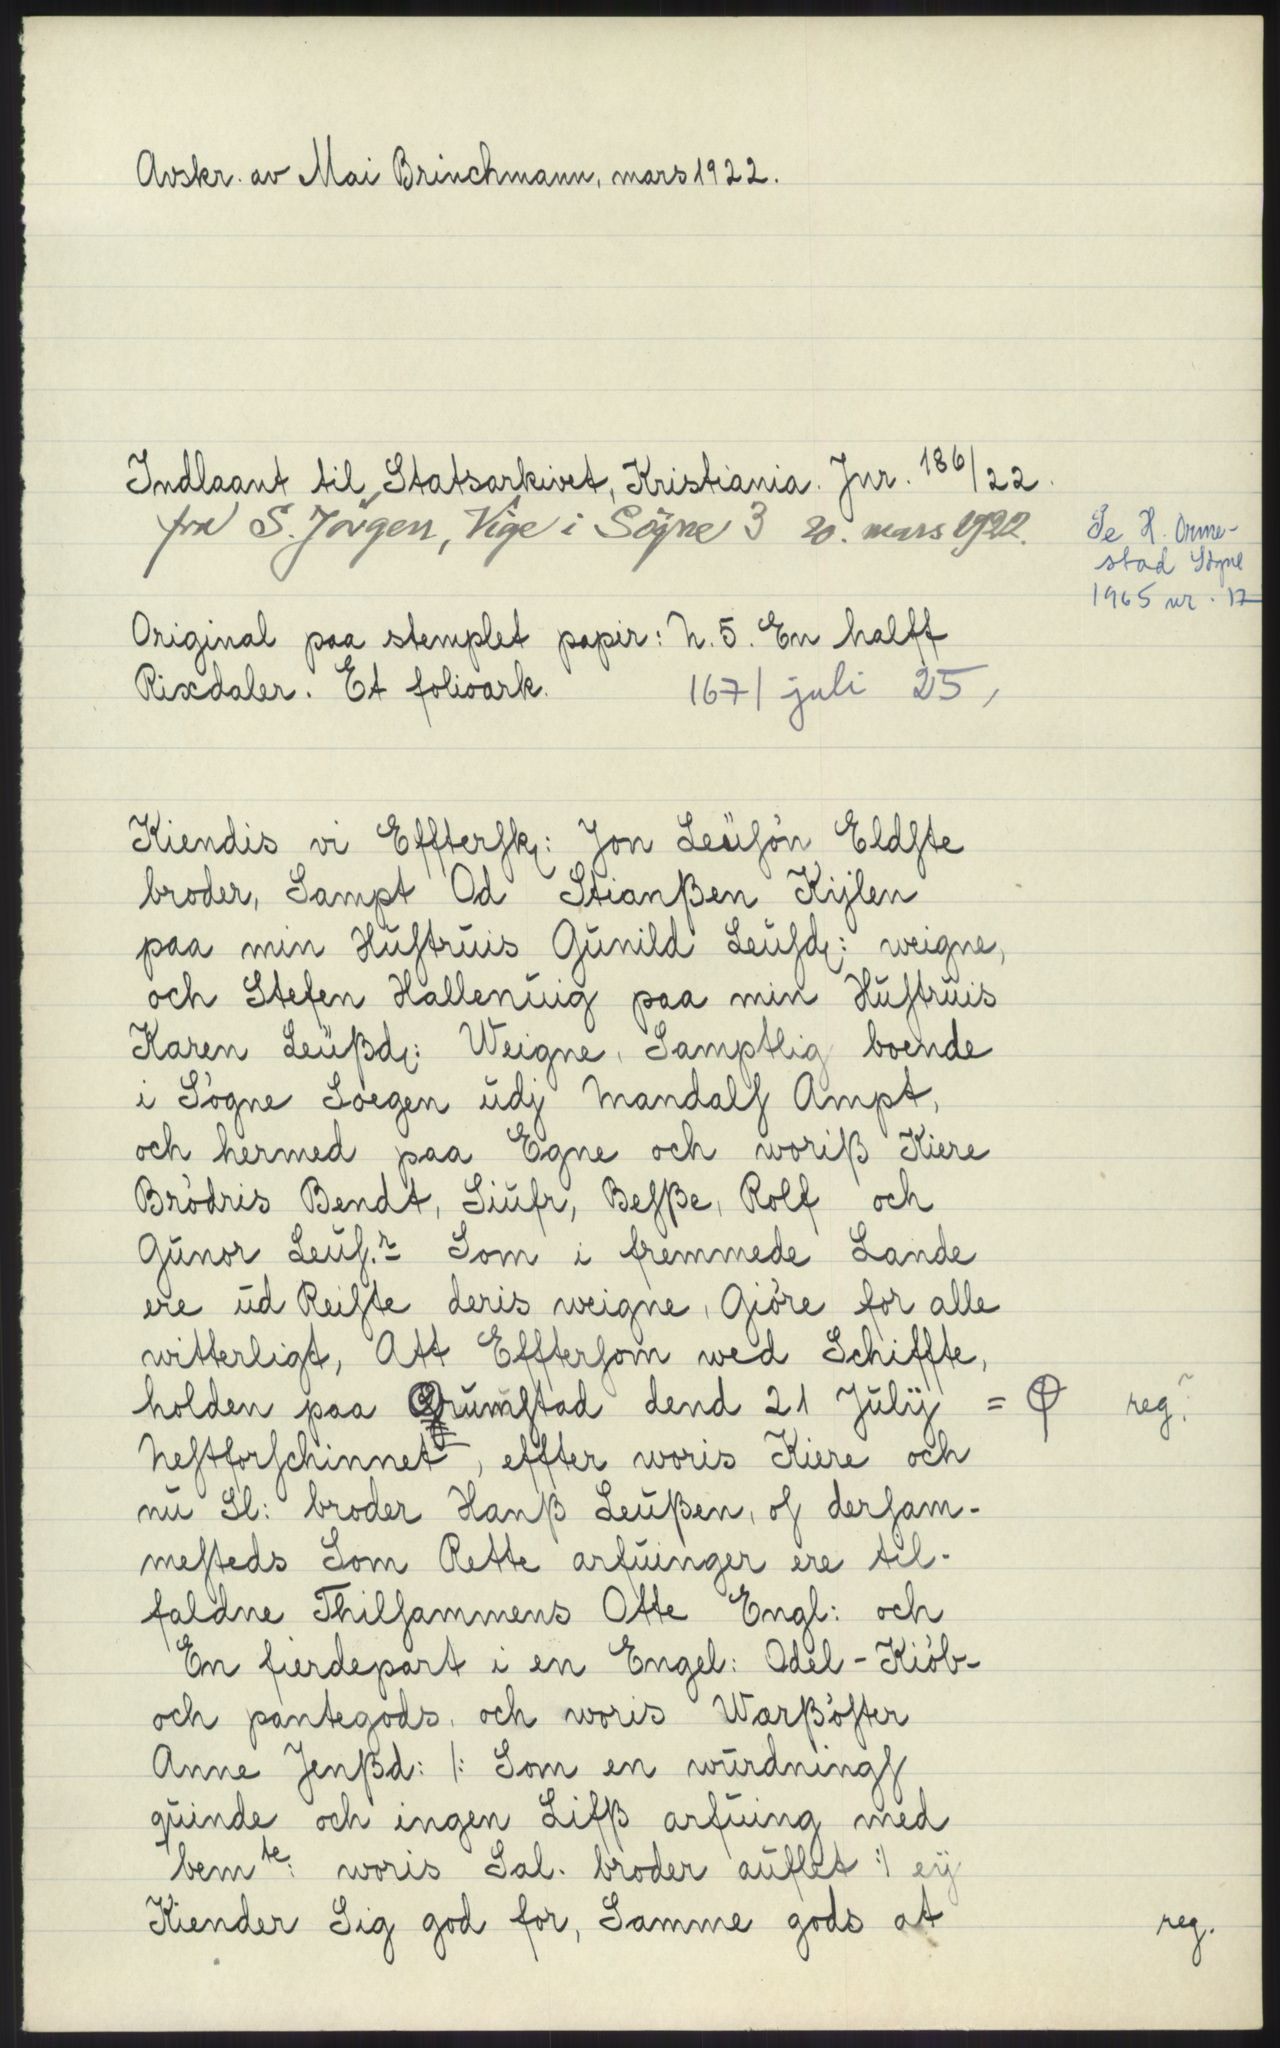 Avskr. av Mai Brinchmann, mars 1922.
Indlaant til Statsarkivet, Kristiania. Jnr. 186/22.
fra S. Jörgen, Vige i Sögne 20. mars 1922.
Se H. Orme-
stad Søgne
1965 nr. 17
Original paa stemplet papir: N. 5. En halff
Rixdaler. Et folioark.
1671 juli 25,
Kiendis vi Efftersk: Jon Leüsön Eldste
broder, Sampt Od Stianßen Kijlen
paa min Hustruis Gunild Leusd: weigne,
och Stefen Hallenuig paa min Hustruis
Karen Leüßd: Weigne, Samptlig boende
i Sögne Soegen udj Mandals Ampt,
och hermed paa Egne och woriß Kiere
Brödris Bendt, Siufr, Besße, Rolf och
Gunor Leus.n Som i fremmede Lande
ere ud Reiste deris weigne, Giöre for alle
witterligt, Att Efftersom wed Schiffte,
holden paa Grumstad dend 21 Julij = reg?
Nestforschinnet, effter woris Kiere och
nu Sl: broder Hanß Leußen, os dersam-
mesteds Som Rette arfuinger ere til-
faldne Thilsammens Otte Engl: och
En fierdepart i en Engel: Odel-Kiöb-
och pantegods, och woris Warßöster
Anne Jenßd: /: Som en wurdnings
quinde och ingen Lifß arfuing med
bemte: woris Sal. broder auflet :/ eÿ
Kiender Sig god for, Samme gods at
reg.